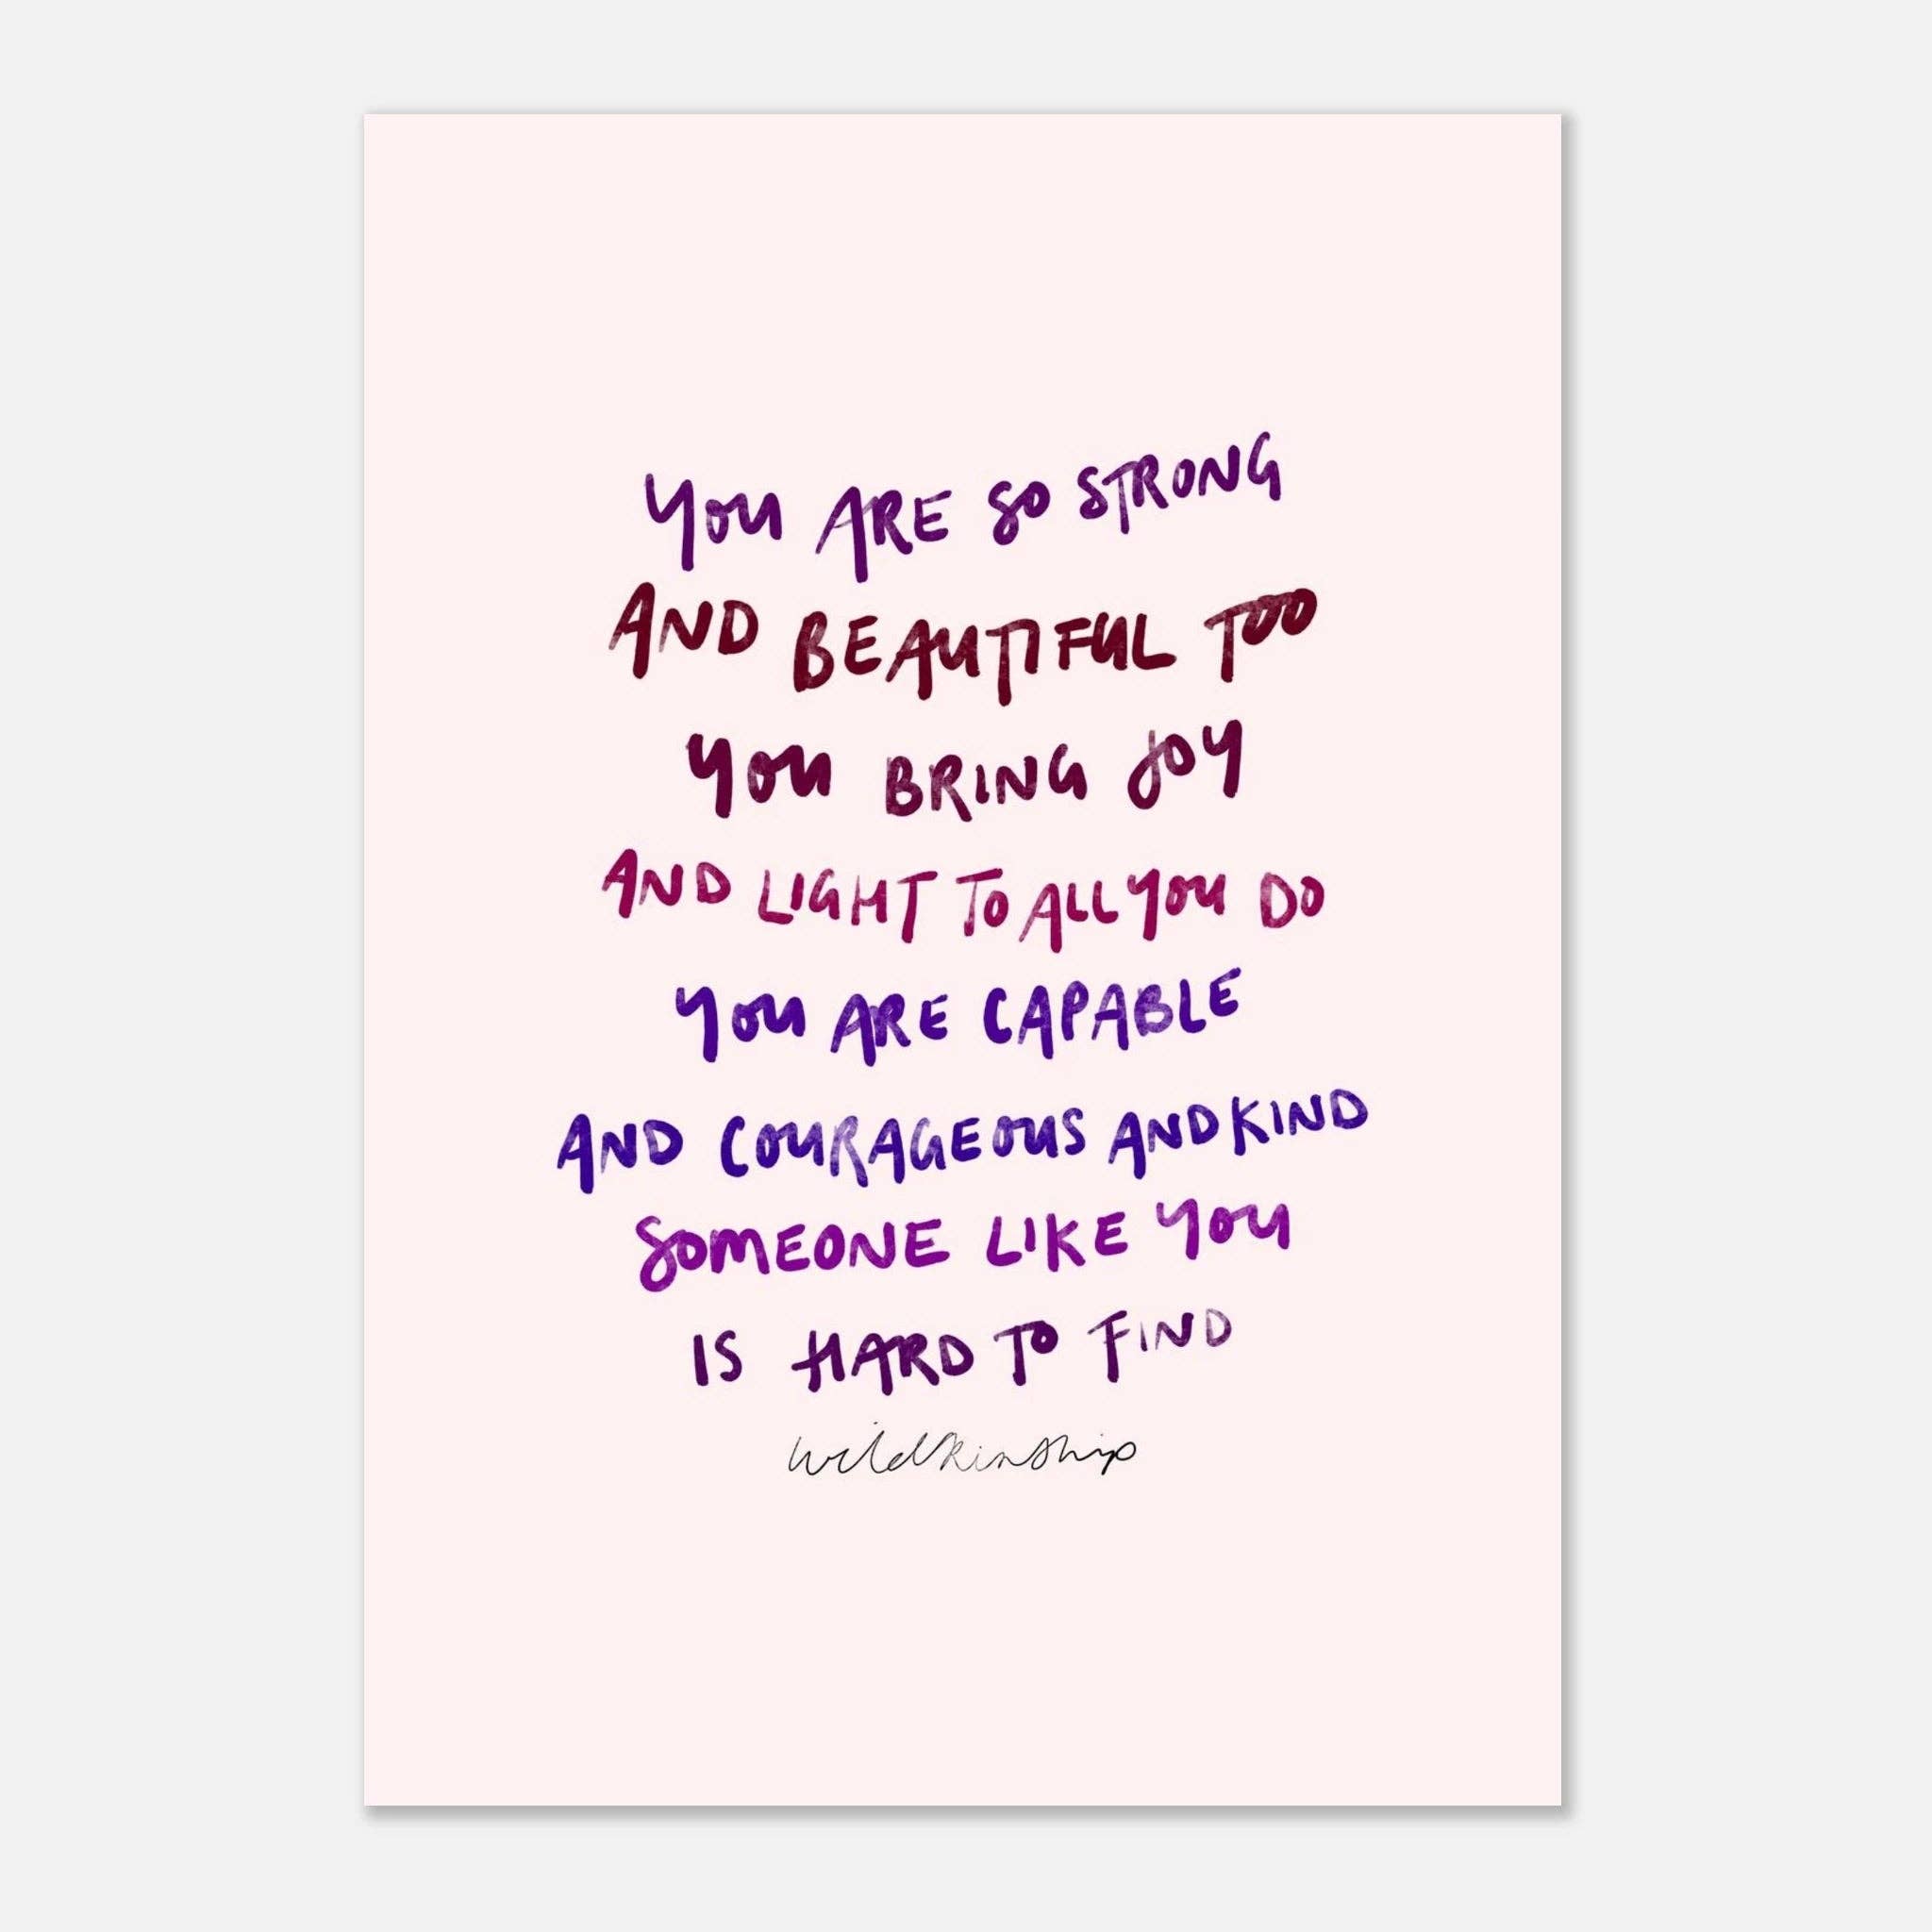 YOU ARE SO STRONG
AND BEAUTIFUL TOO
YOU BRING JOY
AND LIGHT TO ALL YOU DO
YOU ARE CAPABLE
AND COURAGEOUS AND KIND
SOMEONE LIKE YOU
IS HARD TO FIND
wildkinship